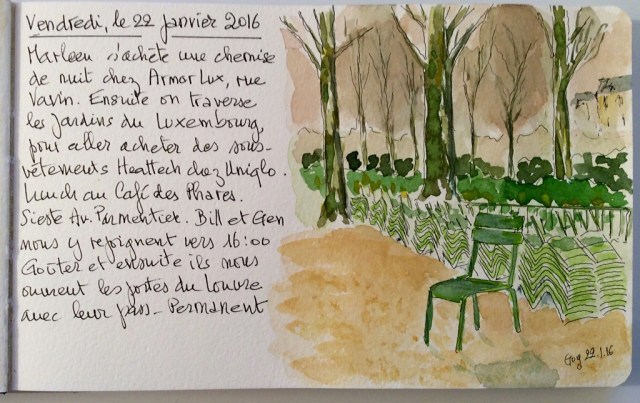 Vendredi, le 22 janvier 2016
Marleen s'achète une chemise
de nuit chez Armor Lux, rue
Vavin. Ensuite on traverse
les Jardins du Luxembourg
pour aller acheter des sous-
vêtements Heattech chez Uniqlo.
Lunch au Café des Phares.
Sieste Av. Parmentier. Bill et Gen
nous y rejoignent vers 16:00
Goûter et ensuite ils nous
ouvrent les portes du Louvre
avec leur pass-Permanent
Gug 22.1.16